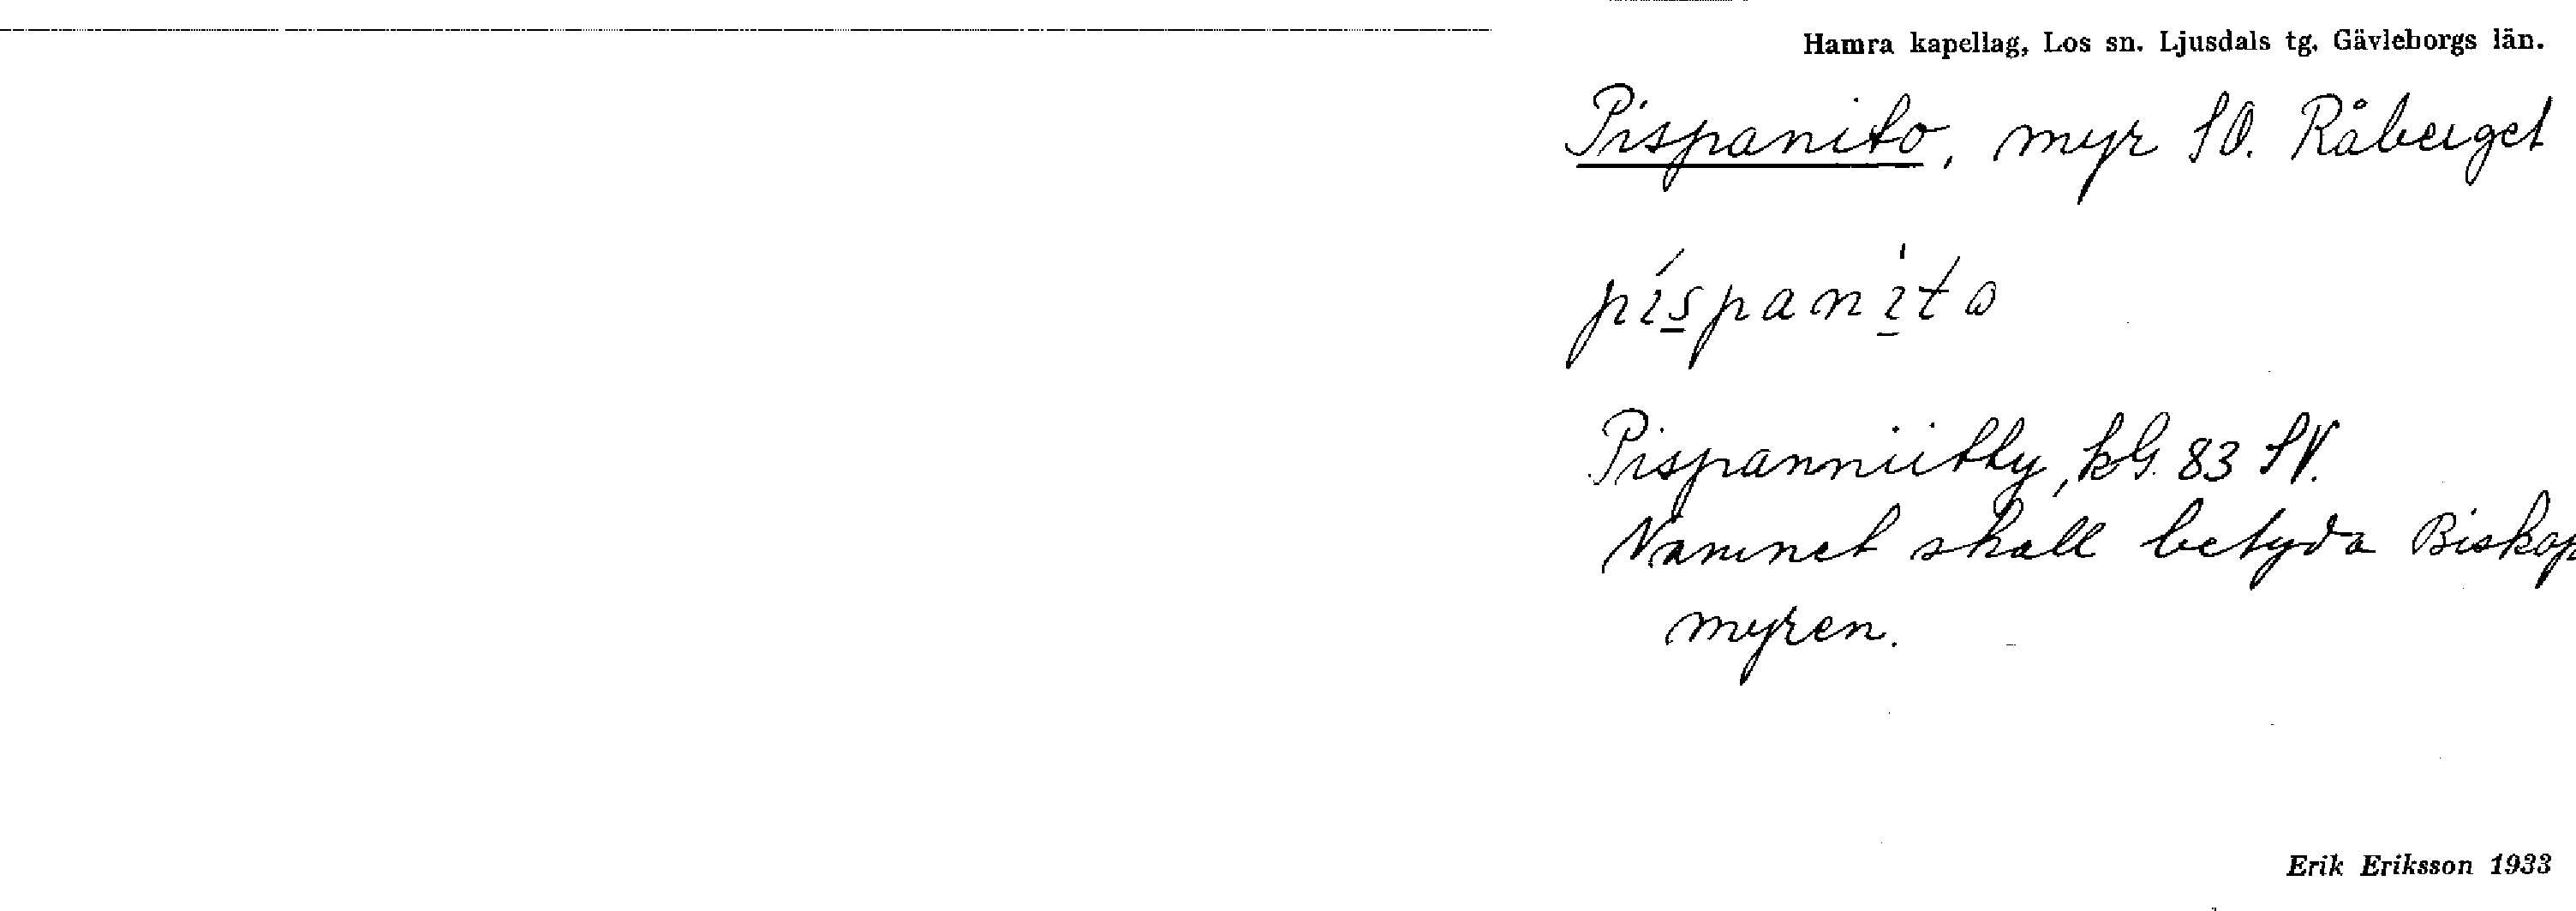 Hamra kapellag, Los sn. Ljusdals tg. Gävleborgs län.
Pispanito, myr SO. Råberget
píspanìto
Pispanniitty, kG. 83 SV.
Namnet skall betyda Biskop
myren.
Erik Eriksson 1933